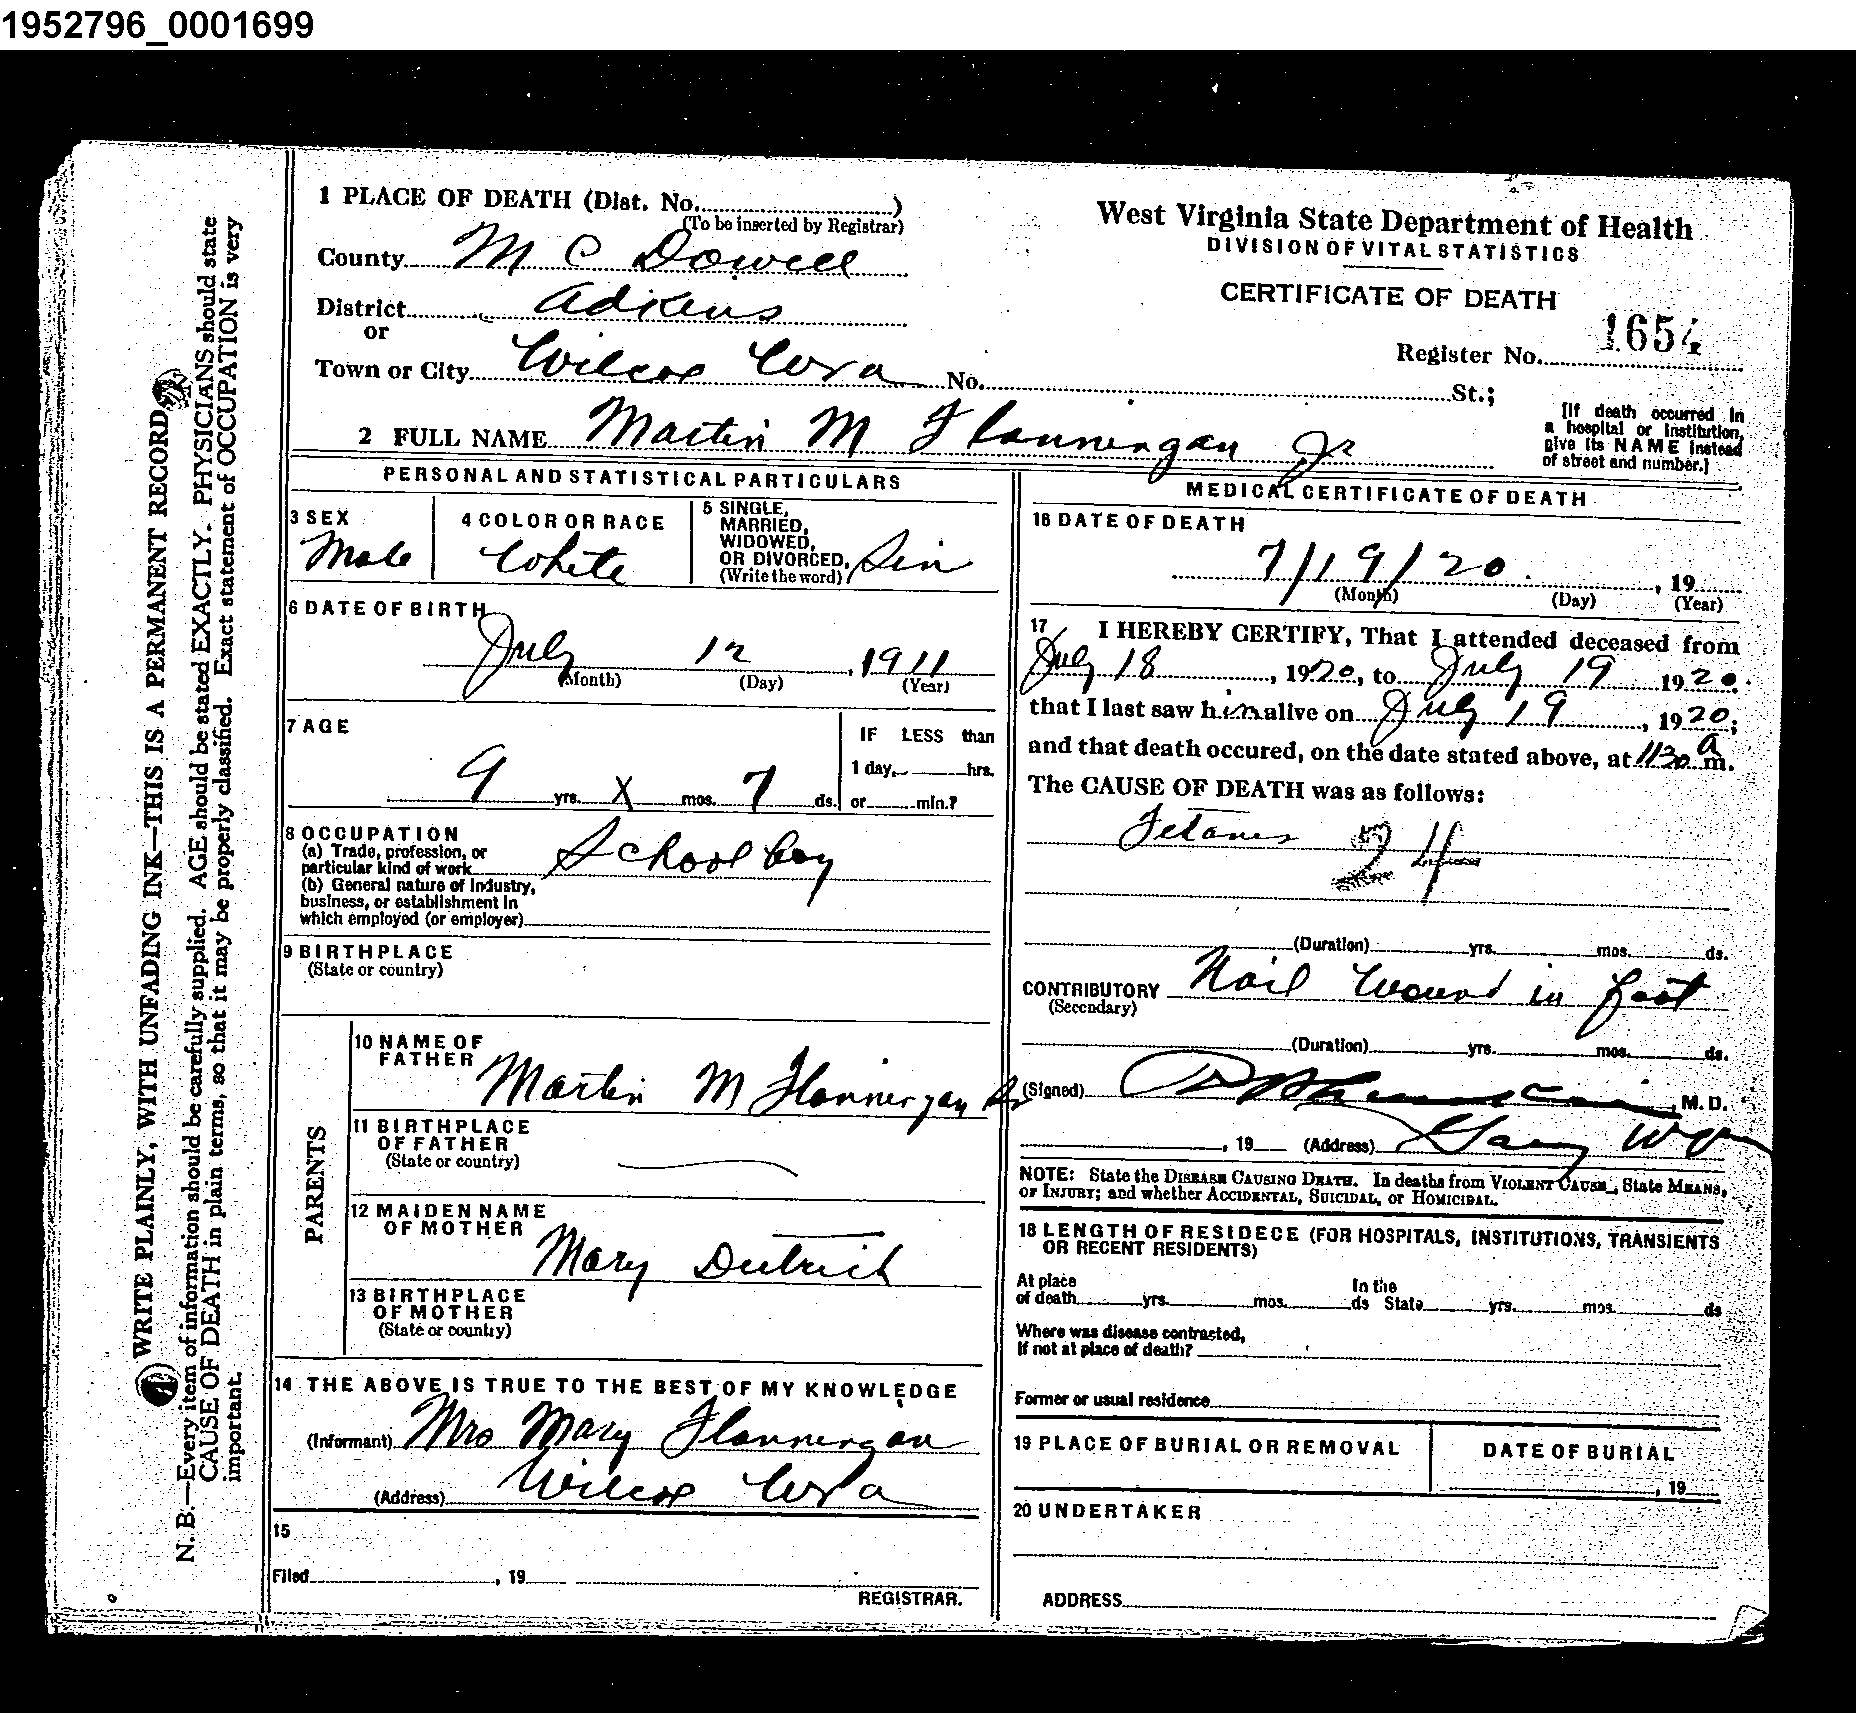 1952796_0001699
WRITE PLAINLY, WITH UNFADING INK—THIS IS A PERMANENT RECORD
N. B.—Every item of information should be carefully supplied. AGE should be stated EXACTLY. PHYSICIANS should state
CAUSE OF DEATH in plain terms, so that it may be properly classified. Exact statement of OCCUPATION is very
important.
1 PLACE OF DEATH (Dist. No. )
(To be inserted by Registrar)
County M C Dowell
District Adkins
or
Town or City Wilcoe Wva No. St.;
West Virginia State Department of Health
DIVISION OF VITAL STATISTICS
CERTIFICATE OF DEATH
Register No. 1654
[If death occurred in
a hospital or institution,
give its NAME instead
of street and number.]
2 FULL NAME Martin M Flannergan Jr
PERSONAL AND STATISTICAL PARTICULARS
3 SEX
Male
4 COLOR OR RACE
White
5 SINGLE,
MARRIED,
WIDOWED,
OR DIVORCED,
(Write the word) Sin
6 DATE OF BIRTH
July 12 , 1911
(Month) (Day) (Year)
7 AGE
9 yrs. X mos. 7 ds.
IF LESS than
1 day, hrs.
or min.?
8 OCCUPATION
(a) Trade, profession, or
particular kind of work School boy
(b) General nature of industry,
business, or establishment in
which employed (or employer)
9 BIRTHPLACE
(State or country)
PARENTS
10 NAME OF
FATHER
Martin M Flannergan Sr
11 BIRTHPLACE
OF FATHER
(State or country)
12 MAIDEN NAME
OF MOTHER
Mary Deitrich
13 BIRTHPLACE
OF MOTHER
(State or country)
14 THE ABOVE IS TRUE TO THE BEST OF MY KNOWLEDGE
(Informant) Mrs Mary Flannergan
(Address) Wilcoe Wva
15
Filed , 19
REGISTRAR.
MEDICAL CERTIFICATE OF DEATH
16 DATE OF DEATH
7/19/20 , 19
(Month) (Day) (Year)
17 I HEREBY CERTIFY, That I attended deceased from
July 18 , 1920, to July 19 1920
that I last saw him alive on July 19 , 1920;
and that death occured, on the date stated above, at 1130 a m.
The CAUSE OF DEATH was as follows:
Tetanus 24
(Duration) yrs. mos. ds.
CONTRIBUTORY Nail wound in foot
(Secondary)
(Duration) yrs. mos. ds.
(Signed) , M. D.
, 19 (Address) Gary Wva
NOTE: State the DISEASE CAUSING DEATH. In deaths from VIOLENT CAUSE, State MEANS,
OF INJURY; and whether ACCIDENTAL, SUICIDAL, or HOMICIDAL.
18 LENGTH OF RESIDECE (FOR HOSPITALS, INSTITUTIONS, TRANSIENTS
OR RECENT RESIDENTS)
At place In the
of death yrs. mos. ds State yrs. mos. ds
Where was disease contracted,
if not at place of death?
Former or usual residence
19 PLACE OF BURIAL OR REMOVAL
DATE OF BURIAL
, 19
20 UNDERTAKER
ADDRESS